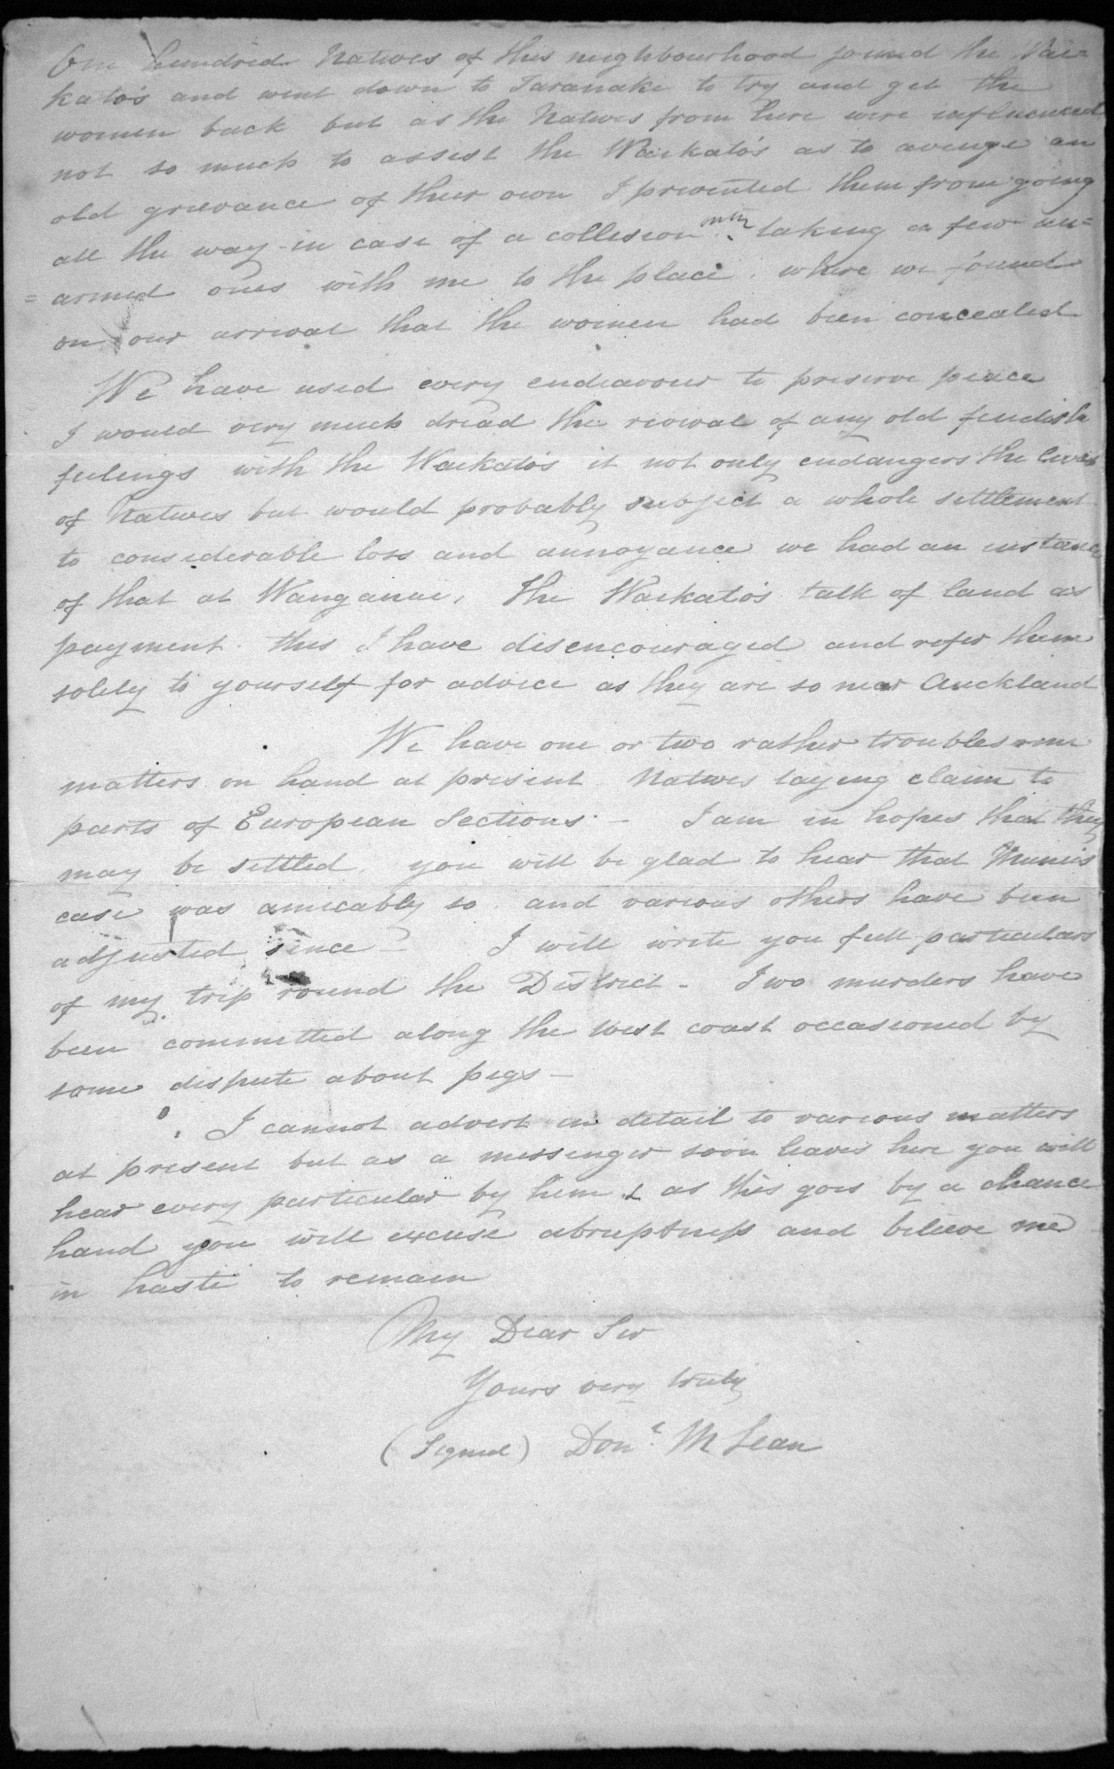 One hundred Natives of this neighbourhood joined the Wai-
katos and went down to Taranake to try and get the
women back but as the Natives from here were influenced
not so much to assist the Waikato's as to avenge an
old grievance of their own I prevented them from going
all the way in case of a collision only taking a few un=
=armed ones with me to the place. where we found
on our arrival that the women had been concealed
We have used every endeavour to preserve peace
I would very much dread the revival of any old feudish
feelings with the Waikato's it not only endangers the lives
of Natives but would probably subject a whole settlement
to considerable loss and annoyance we had an instance
of that at Wanganui, The Waikato's talk of land as
payment. this I have disencouraged and refer them
solely to yourself for advice as they are so near Auckland
We have one or two rather troublesome
matters on hand at present Natives laying claim to
parts of European Sections - I am in hopes that they
may be settled. you will be glad to hear that
case was amicably so. and various others have been
adjusted since - I will write you full particulars
of my trip round the District - Two murders have
been committed along the West coast occasioned by
some dispute about pegs -
I cannot advert in detail to various matters
at present but as a messenger soon leaves here you will
hear every particular by him & as this goes by a chance
hand you will excuse abruptness and believe me
in haste to remain
My Dear Sir
Yours very truly
(Signed) Don^d. McLean